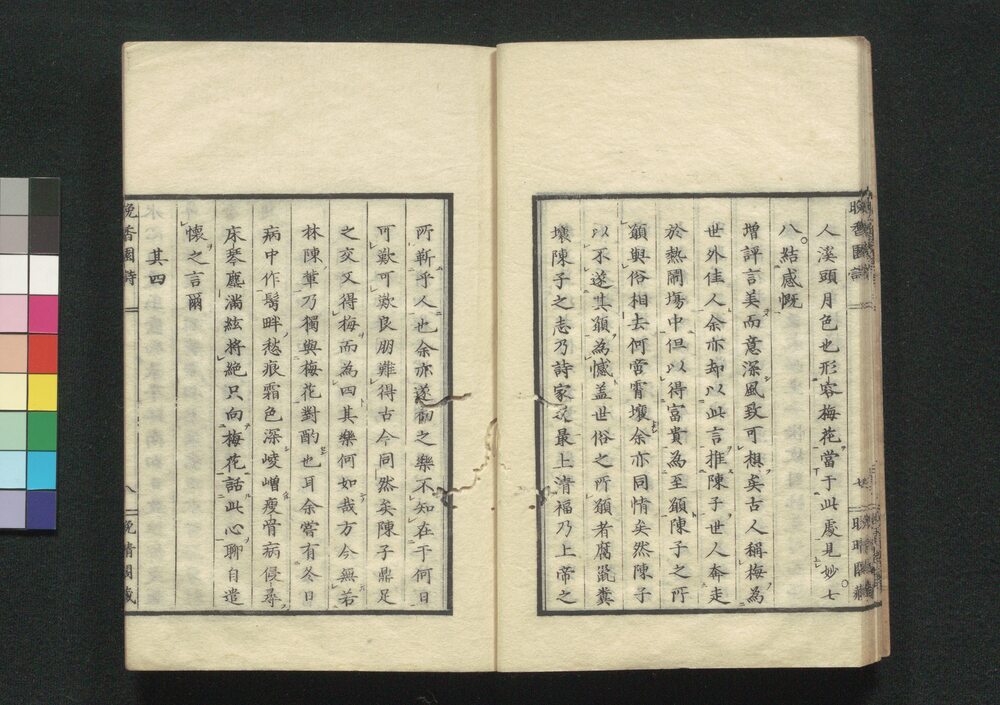 晚香園詩
七
晚晴閣藏
人溪頭月色也形容梅花當于此處見妙七
八結感慨
增評言美而意深風致可想矣古人稱梅為
世外佳人余亦却以此言推陳子世人奔走
於熱鬧場中但以得富貴為至願陳子之所
願與俗相去何啻霄壤余亦同情矣然陳子
以不遂其願為憾盖世俗之所願者腐鼠糞
壤陳子之志乃詩家最上清福乃上帝之
所靳乎人也余亦遂初之樂不知在于何日
可歎可歎良朋難得古今同然矣陳子鼎足
之交又得梅而為四其樂何如哉方今無若
林陳輩乃獨與梅花對酌也耳余嘗有冬日
病中作鬢畔愁痕霜色深崚嶒瘦骨病侵尋
床琴塵滿絃將絕只向梅花話此心聊自遣
懷之言爾
其四
晚香園詩
八
晚晴閣藏